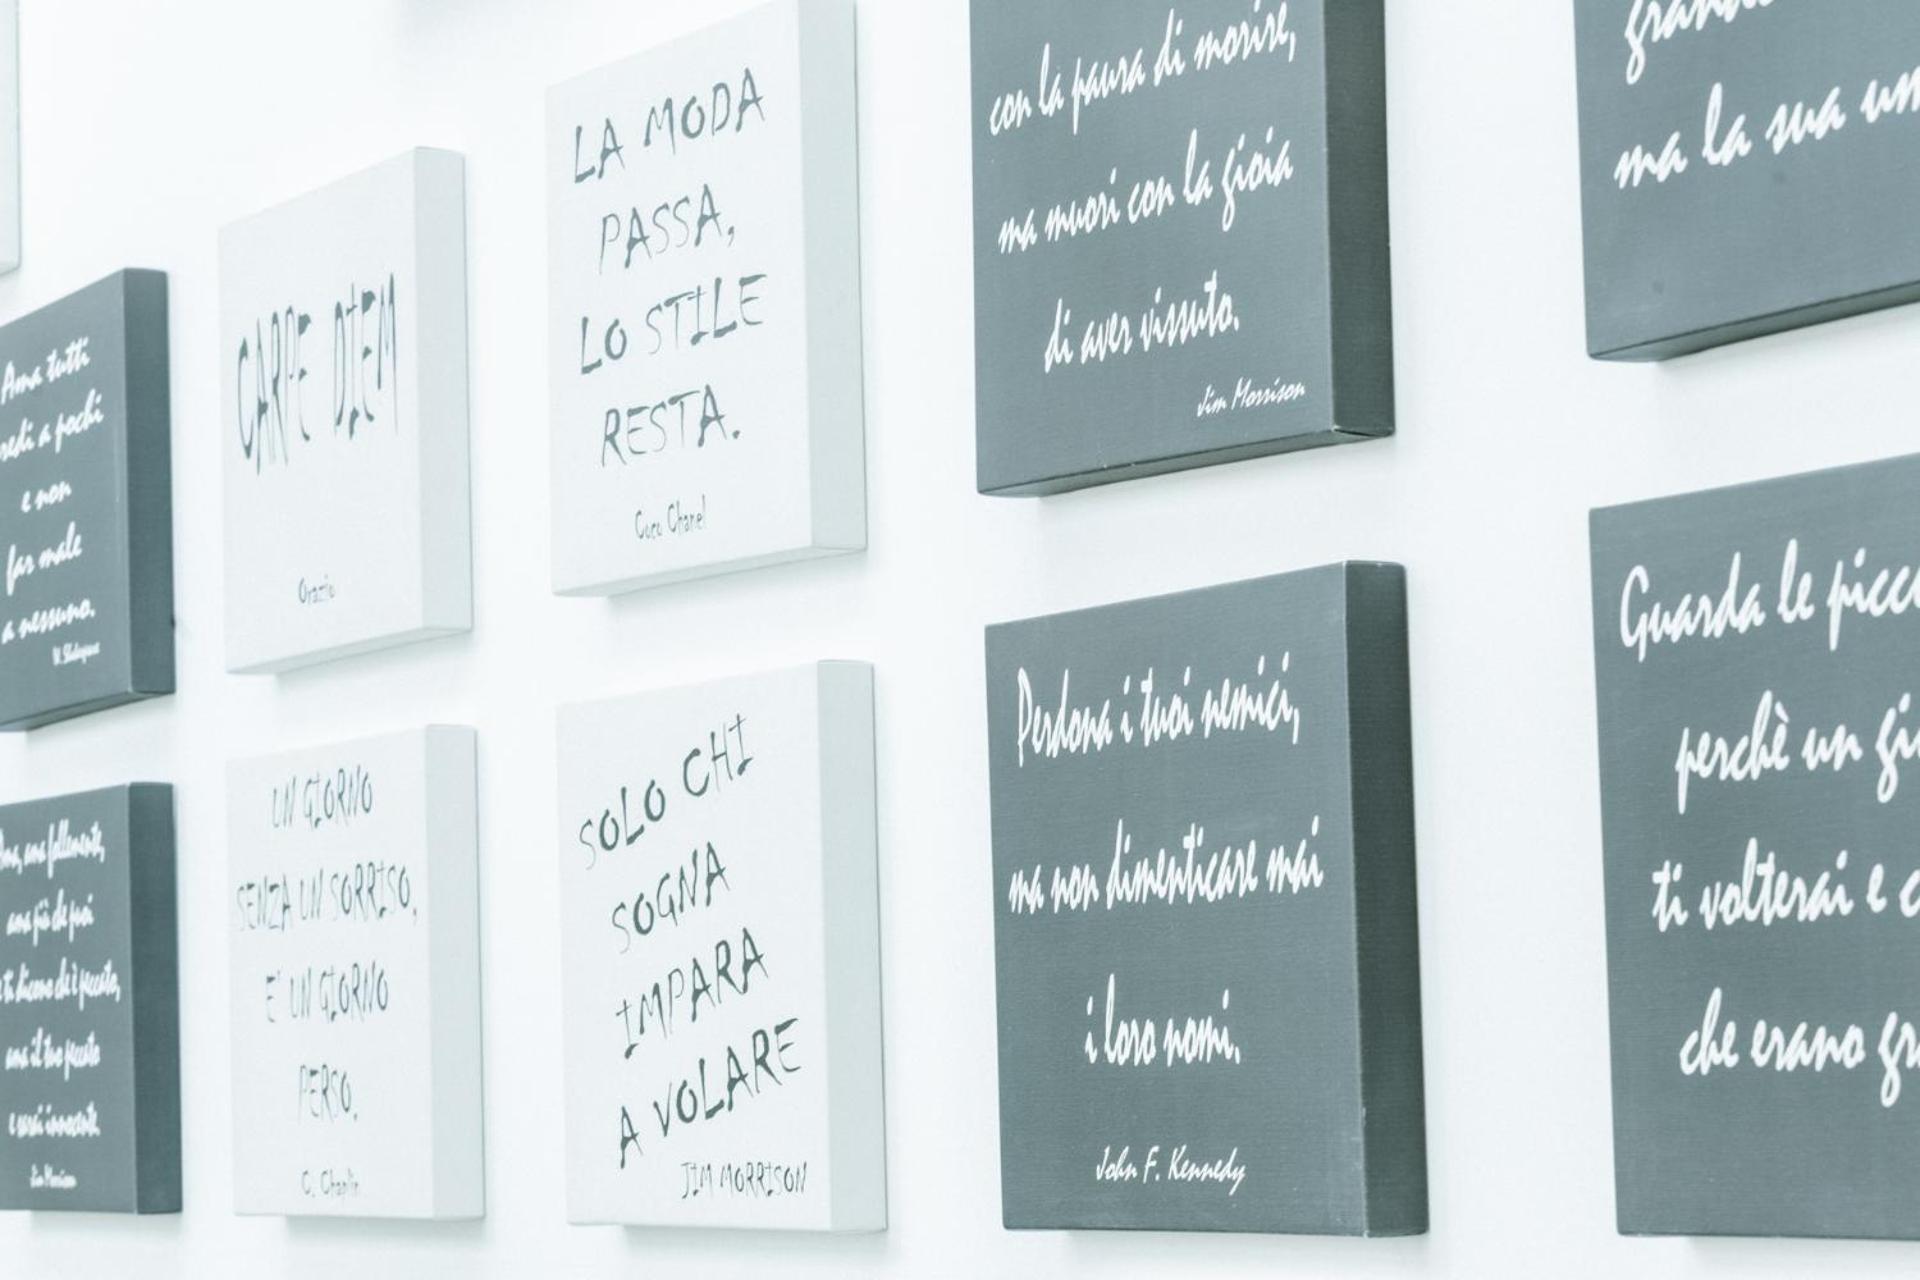 Ama tutti
redi a pochi
e non
far male
a nessuno.
CARPE DIEM
Orazio
LA MODA
PASSA,
LO STILE
RESTA.
Coco Chanel
con la paura di morire,
ma muori con la gioia
di aver vissuto.
Jim Morrison
ma la sua
ama, ama follemente,
ama più che puoi
e ti dicono che è peccato,
ama il tuo peccato
e sarai innocente.
Jim Morrison
UN GIORNO
SENZA UN SORRISO,
E' UN GIORNO
PERSO.
C. Chaplin
SOLO CHI
SOGNA
IMPARA
A VOLARE
JIM MORRISON
Perdona i tuoi nemici,
ma non dimenticare mai
i loro nomi.
John F. Kennedy
Guarda le picc
perchè un gi
ti volterai e c
che erano gr